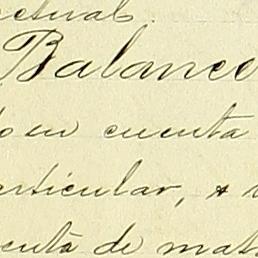 ectual.
Balance
en cuenta
articular, +
cuenta de mat